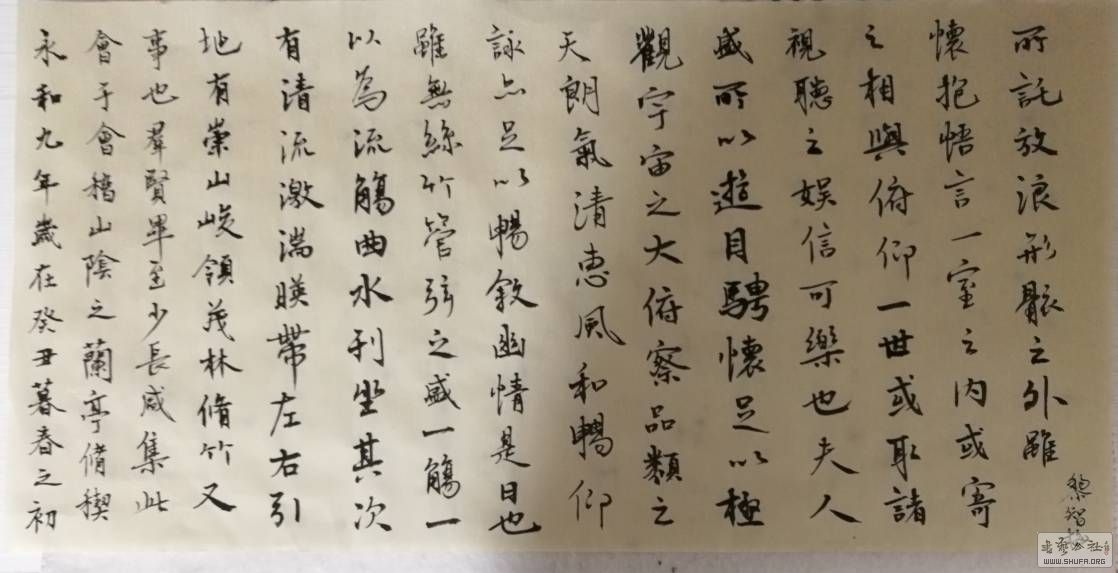 永和九年歲在癸丑暮春之初
會于會稽山陰之蘭亭脩稧
事也羣賢畢至少長咸集此
地有崇山峻領茂林脩竹又
有清流激湍暎帶左右引
以為流觴曲水列坐其次
雖無絲竹管弦之盛一觴一
詠亦足以暢敘幽情是日也
天朗氣清惠風和暢仰
觀宇宙之大俯察品類之
盛所以遊目騁懷足以極
視聽之娛信可樂也夫人
之相與俯仰一世或取諸
懷抱悟言一室之內或寄
所託放浪形骸之外雖
黎智
WWW.SHUFA.ORG